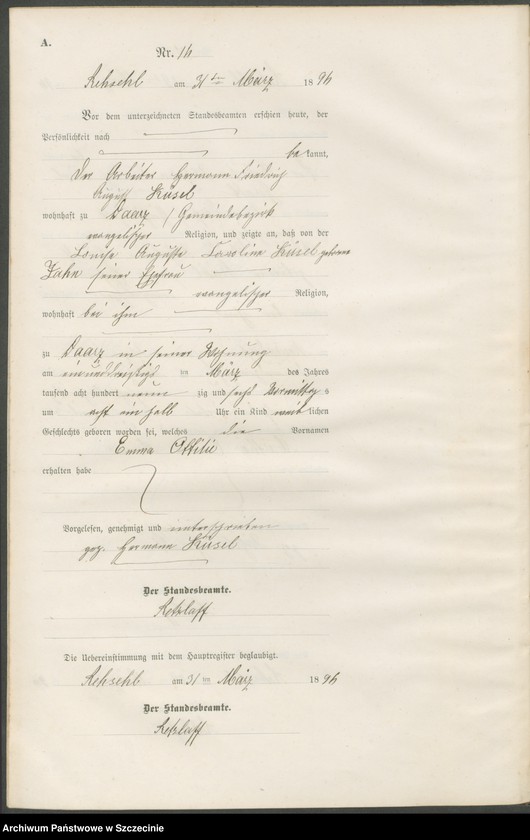 A.
Nr. 14
Rehsehl am 31ten März 1896
Vor dem unterzeichneten Standesbeamten erschien heute, der
Persönlichkeit nach
be kannt,
Der Arbeiter Hermann Friedrich
August Küsel
wohnhaft zu Daarz / Gemeindebezirk
evangelischer Religion, und zeigte an, daß von der
Louise Auguste Caroline Küsel geborene
Zahn seiner Ehefrau
evangelischer Religion,
wohnhaft bei ihm
zu Daarz in seiner Wohnung
am einunddreißigsten März des Jahres
tausend acht hundert neun zig und sechs Vormittags
um acht ein halb Uhr ein Kind weib lichen
Geschlechts geboren worden sei, welches die Vornamen
Emma Ottilie
erhalten habe
Vorgelesen, genehmigt und unterschrieben
gez. Hermann Küsel
Der Standesbeamte.
Retzlaff
Die Uebereinstimmung mit dem Hauptregister beglaubigt.
Rehsehl am 31ten März 1896
Der Standesbeamte.
Retzlaff
Archiwum Państwowe w Szczecinie